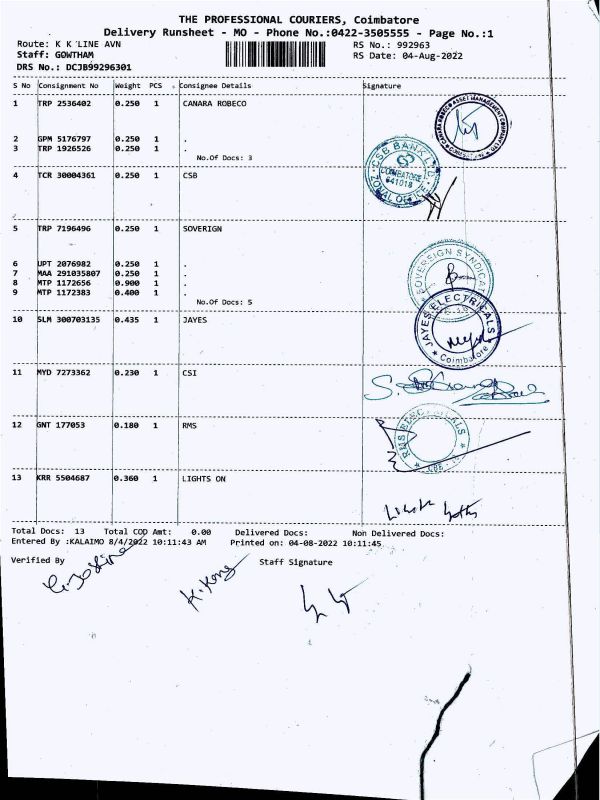 THE PROFESSIONAL COURIERS, Coimbatore
Delivery Runsheet - MO - Phone No.:0422-3505555 - Page No.:1
Route: K K LINE AVN RS No.: 992963
Staff: GOWTHAM RS Date: 04-Aug-2022
DRS No.: DCJB99296301
S No Consignment No Weight PCS Consignee Details Signature
1 TRP 2536402 0.250 1 CANARA ROBECO
2 GPM 5176797 0.250 1 .
3 TRP 1926526 0.250 1 .
No.Of Docs: 3
CSB BANK LTD
COIMBATORE
641018
ZONAL OFFICE
4 TCR 30004361 0.250 1 CSB
5 TRP 7196496 0.250 1 SOVERIGN
6 UPT 2076982 0.250 1 .
7 MAA 291035807 0.250 1 .
8 MTP 1172656 0.900 1 .
9 MTP 1172383 0.400 1 .
No.Of Docs: 5
SOVERSIGN SYNDICATE
10 SLM 300703135 0.435 1 JAYES
JAYES ELECTRICALS
Coimbatore
11 MYD 7273362 0.230 1 CSI
12 GNT 177053 0.180 1 RMS
RMS ELECTRICALS
13 KRR 5504687 0.360 1 LIGHTS ON
Total Docs: 13 Total COD Amt: 0.00 Delivered Docs: Non Delivered Docs:
Entered By :KALAIMO 8/4/2022 10:11:43 AM Printed on: 04-08-2022 10:11:45
Verified By Staff Signature